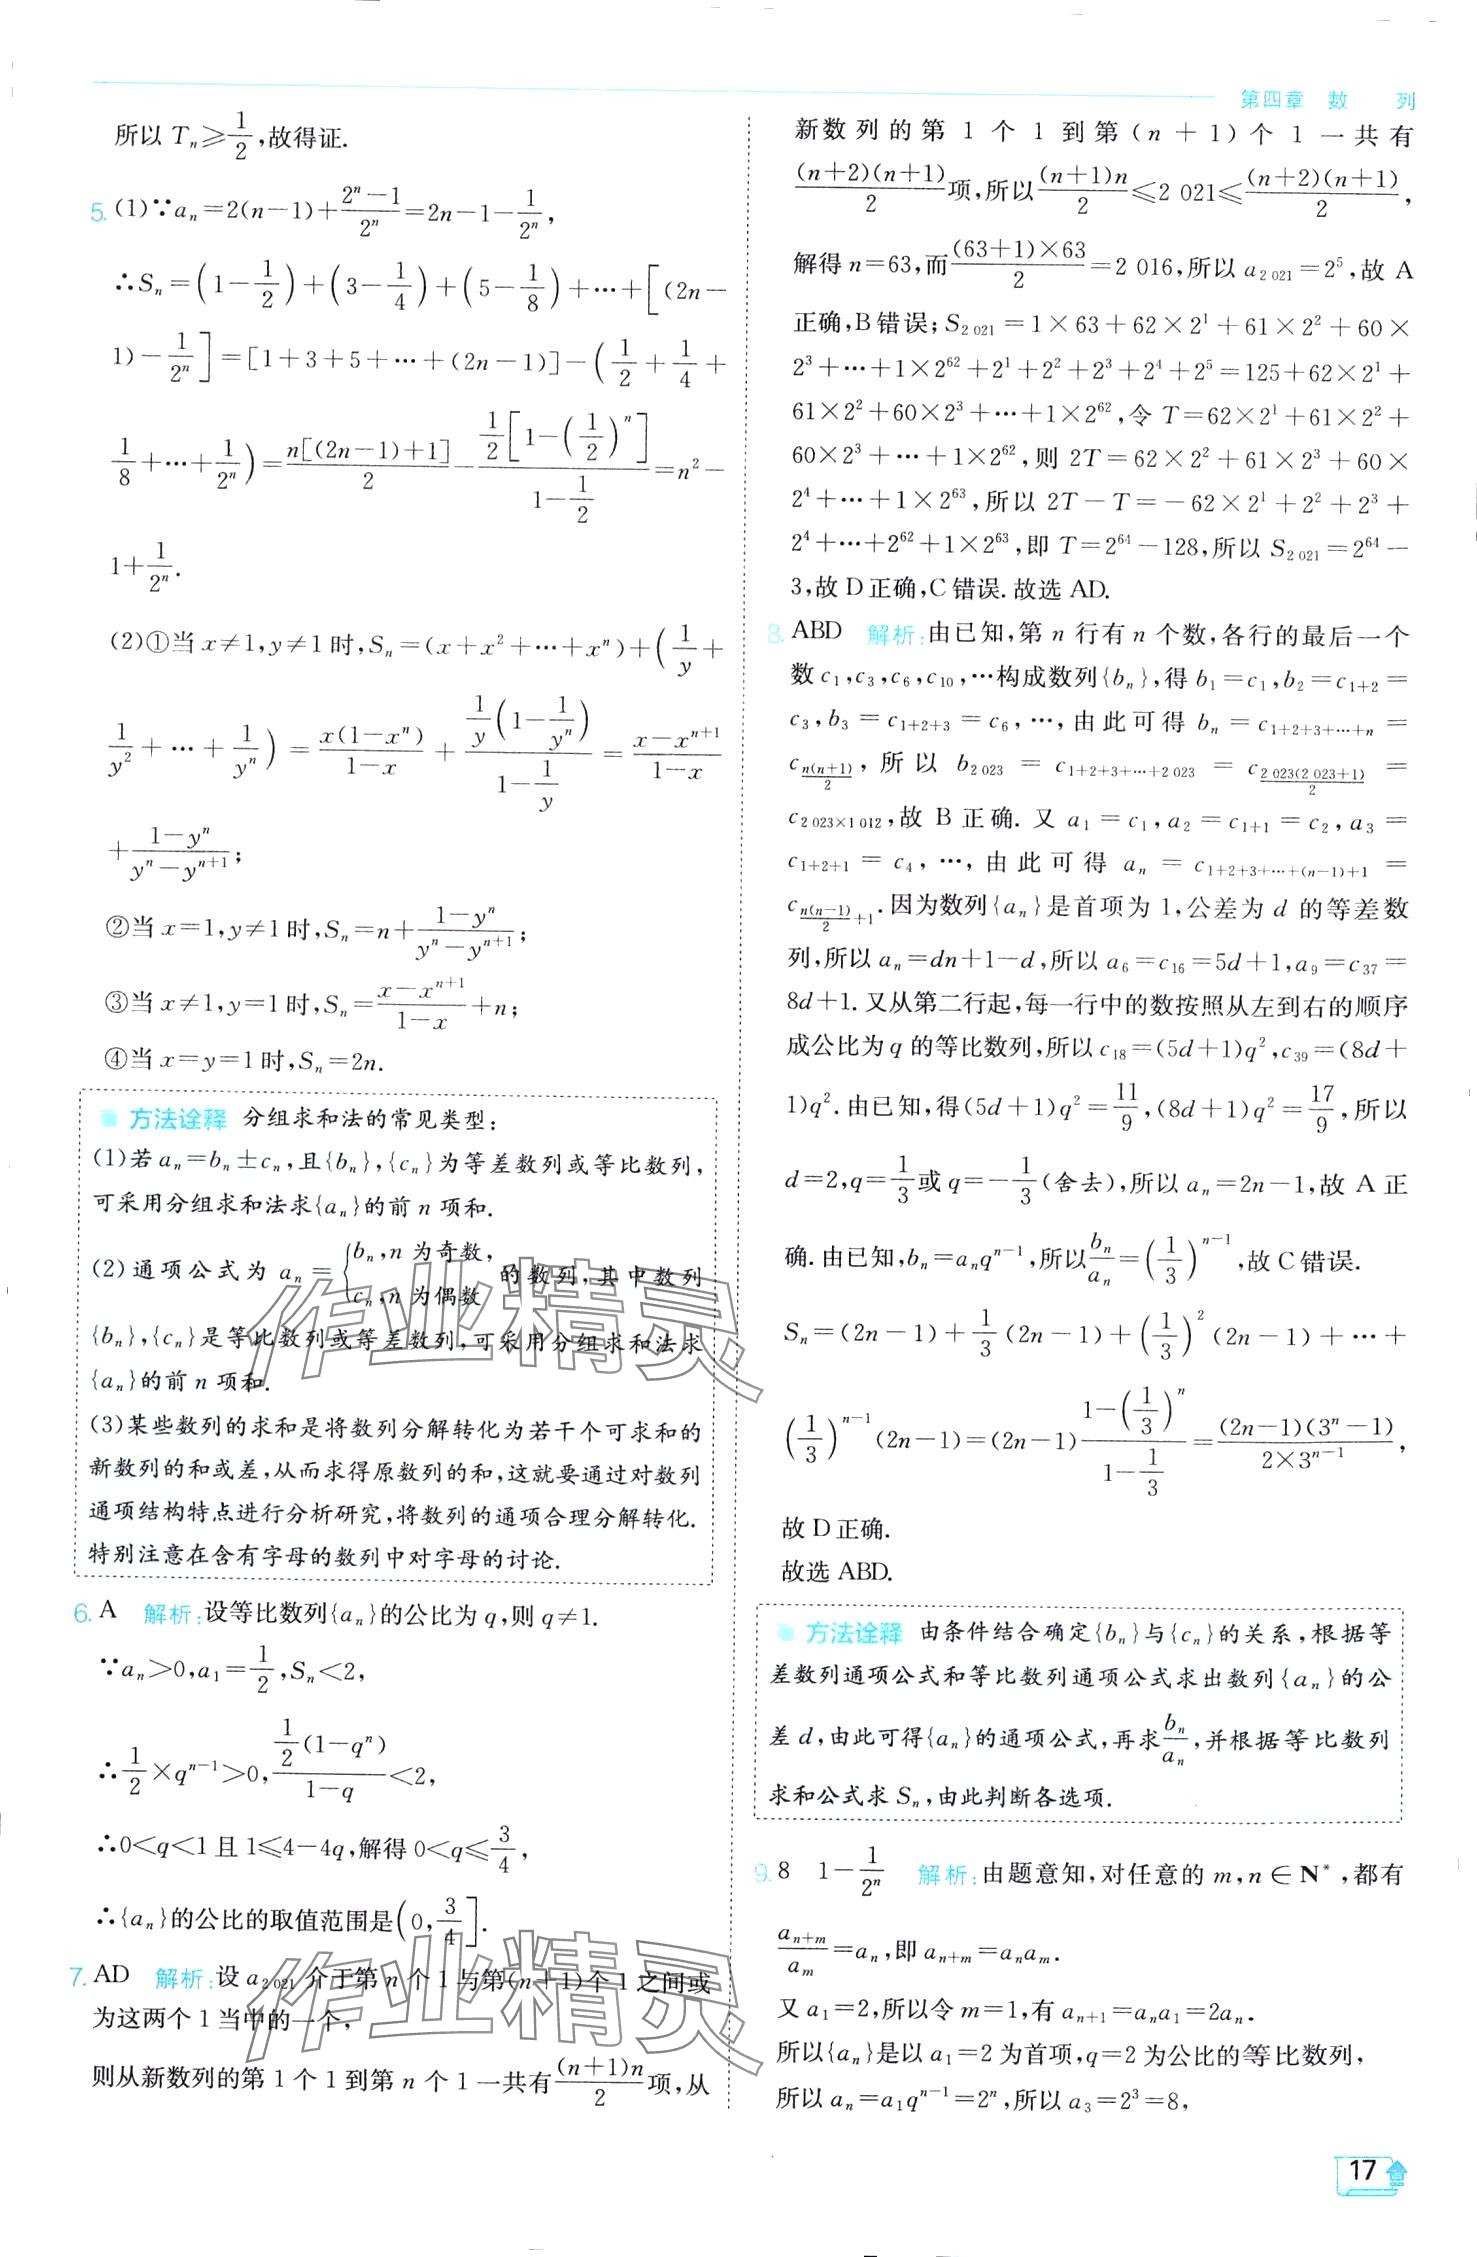 第四章 数 列
所以 Tₙ≥1/2,故得证.
5. (1)∵aₙ=2(n−1)+(2ⁿ−1)/2ⁿ=2n−1−1/2ⁿ,
∴Sₙ=(1−1/2)+(3−1/4)+(5−1/8)+…+[(2n−
1)−1/2ⁿ]=[1+3+5+…+(2n−1)]−(1/2+1/4+
1/8+…+1/2ⁿ)=n[(2n−1)+1]/2−(1/2[1−(1/2)ⁿ])/(1−1/2)=n²−
1+1/2ⁿ.
(2)①当 x≠1,y≠1时,Sₙ=(x+x²+…+xⁿ)+(1/y+
1/y²+…+1/yⁿ)=x(1−xⁿ)/(1−x)+(1/y(1−1/yⁿ))/(1−1/y)=(x−xⁿ⁺¹)/(1−x)
+(1−yⁿ)/(yⁿ−yⁿ⁺¹);
②当 x=1,y≠1时,Sₙ=n+(1−yⁿ)/(yⁿ−yⁿ⁺¹);
③当 x≠1,y=1时,Sₙ=(x−xⁿ⁺¹)/(1−x)+n;
④当 x=y=1时,Sₙ=2n.
方法诠释 分组求和法的常见类型:
(1)若 aₙ=bₙ±cₙ,且{bₙ},{cₙ}为等差数列或等比数列,
可采用分组求和法求{aₙ}的前 n 项和.
(2)通项公式为 aₙ={bₙ,n 为奇数, cₙ,n 为偶数 的数列,其中数列
{bₙ},{cₙ}是等比数列或等差数列,可采用分组求和法求
{aₙ}的前 n 项和.
(3)某些数列的求和是将数列分解转化为若干个可求和的
新数列的和或差,从而求得原数列的和,这就要通过对数列
通项结构特点进行分析研究,将数列的通项合理分解转化.
特别注意在含有字母的数列中对字母的讨论.
6. A 解析:设等比数列{aₙ}的公比为 q,则 q≠1.
∵aₙ>0,a₁=1/2,Sₙ<2,
∴1/2×qⁿ⁻¹>0,(1/2(1−qⁿ))/(1−q)<2,
∴0<q<1 且 1≤4−4q,解得 0<q≤3/4,
∴{aₙ}的公比的取值范围是(0,3/4].
7. AD 解析:设 a₂ ₀₂₁ 介于第 n 个 1 与第(n+1)个 1 之间或
为这两个 1 当中的一个,
则从新数列的第 1 个 1 到第 n 个 1 一共有(n+1)n/2项,从
新数列的第 1 个 1 到第(n+1)个 1 一共有
(n+2)(n+1)/2项,所以(n+1)n/2≤2 021≤(n+2)(n+1)/2,
解得 n=63,而(63+1)×63/2=2 016,所以 a₂ ₀₂₁=2⁵,故 A
正确,B错误;S₂ ₀₂₁=1×63+62×2¹+61×2²+60×
2³+…+1×2⁶²+2¹+2²+2³+2⁴+2⁵=125+62×2¹+
61×2²+60×2³+…+1×2⁶²,令 T=62×2¹+61×2²+
60×2³+…+1×2⁶²,则 2T=62×2²+61×2³+60×
2⁴+…+1×2⁶³,所以 2T−T=−62×2¹+2²+2³+
2⁴+…+2⁶²+1×2⁶³,即 T=2⁶⁴−128,所以 S₂ ₀₂₁=2⁶⁴−
3,故 D正确,C错误.故选 AD.
8. ABD 解析:由已知,第 n 行有 n 个数,各行的最后一个
数 c₁,c₃,c₆,c₁₀,…构成数列{bₙ},得 b₁=c₁,b₂=c₁₊₂=
c₃,b₃=c₁₊₂₊₃=c₆,…,由此可得 bₙ=c₁₊₂₊₃₊…₊ₙ=
c_(n(n+1)/2),所以 b₂ ₀₂₃=c_(1+2+3+…+2 023)=c_(2 023(2 023+1)/2)=
c_(2 023×1 012),故 B 正确.又 a₁=c₁,a₂=c₁₊₁=c₂,a₃=
c₁₊₂₊₁=c₄,…,由此可得 aₙ=c_(1+2+3+…+(n−1)+1)=
c_(n(n−1)/2+1).因为数列{aₙ}是首项为 1,公差为 d 的等差数
列,所以 aₙ=dn+1−d,所以 a₆=c₁₆=5d+1,a₉=c₃₇=
8d+1.又从第二行起,每一行中的数按照从左到右的顺序
成公比为 q 的等比数列,所以 c₁₈=(5d+1)q²,c₃₉=(8d+
1)q².由已知,得(5d+1)q²=11/9,(8d+1)q²=17/9,所以
d=2,q=1/3或 q=−1/3(舍去),所以 aₙ=2n−1,故 A 正
确.由已知,bₙ=aₙqⁿ⁻¹,所以bₙ/aₙ=(1/3)ⁿ⁻¹,故 C错误.
Sₙ=(2n−1)+1/3(2n−1)+(1/3)²(2n−1)+…+
(1/3)ⁿ⁻¹(2n−1)=(2n−1)(1−(1/3)ⁿ)/(1−1/3)=(2n−1)(3ⁿ−1)/(2×3ⁿ⁻¹),
故 D正确.
故选 ABD.
方法诠释 由条件结合确定{bₙ}与{cₙ}的关系,根据等
差数列通项公式和等比数列通项公式求出数列{aₙ}的公
差 d,由此可得{aₙ}的通项公式,再求bₙ/aₙ,并根据等比数列
求和公式求 Sₙ,由此判断各选项.
9. 8 1−1/2ⁿ 解析:由题意知,对任意的 m,n∈N*,都有
aₙ₊ₘ/aₘ=aₙ,即 aₙ₊ₘ=aₙaₘ.
又 a₁=2,所以令 m=1,有 aₙ₊₁=aₙa₁=2aₙ.
所以{aₙ}是以 a₁=2 为首项,q=2 为公比的等比数列,
所以 aₙ=a₁qⁿ⁻¹=2ⁿ,所以 a₃=2³=8,
17
作业精灵
作业精灵